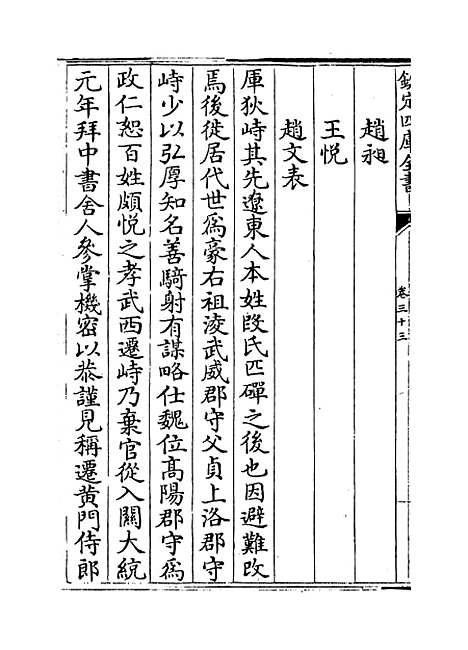 欽定四庫全書
卷三十三
趙昶
王悦
趙文表
厙狄峙其先遼東人本姓叚氏匹磾之後也因避難改
焉後徙居代世爲豪右祖淩武威郡守父貞上洛郡守
峙少以弘厚知名善騎射有謀略仕魏位髙陽郡守爲
政仁恕百姓頗悦之孝武西遷峙乃棄官從入關大統
元年拜中書舍人參掌機密以恭謹見稱遷黄門侍郎